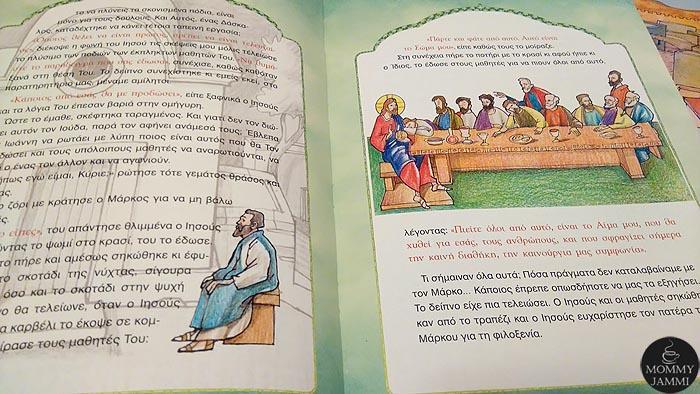 να πλύνεις τα σκονισμένα πόδια, είναι
μόνο για τους δούλους. Και Αυτός, ένας Δάσκα-
λος, καταδέχτηκε να κάνει τέτοια ταπεινή εργασία;
θέλει να είναι πρώτος, πρέπει να είναι τελευταί-
διέκοψε η φωνή του Ιησού τις σκέψεις μου μόλις τελείωσε
το πλύσιμο των ποδιών των έκπληκτων μαθητών Του.
το παράδειγμα που σας έδωσα», συνέχισε, καθώς καθόταν
ξανά στη θέση Του. Το δείπνο συνεχίστηκε κι εμείς εκεί, στο
παρατηρητήριό μας, μέναμε αμίλητοι.
«Κάποιος από εσάς θα με προδώσει», είπε ξαφνικά ο Ιησούς
και τα λόγια Του έπεσαν βαριά στην ομήγυρη.
Ώστε το έμαθε, σκέφτηκα ταραγμένος. Και γιατί δεν τον διώ-
ει αυτόν τον Ιούδα, παρά τον αφήνει ανάμεσά τους; Έβλεπα
Ιωάννη να ρωτάει με λύπη ποιος είναι αυτός που θα Τον
δώσει και τους υπόλοιπους μαθητές να αναρωτιούνται, να
ο ένας τον άλλον και να αγωνιούν.
πως εγώ είμαι, Κύριε;» ρώτησε τότε γεμάτος θράσος και
ας.
ζόρι με κράτησε ο Μάρκος για να μη βάλω
ές.
είπες», του απάντησε θλιμμένα ο Ιησούς
ώντας το ψωμί στο κρασί, του το έδωσε.
το πήρε και αμέσως σηκώθηκε κι έφυ-
το σκοτάδι της νύχτας, σίγουρα
όσο και το σκοτάδι στην ψυχή
νο θα τελείωνε, όταν ο Ιησούς
α καρβέλι το έκοψε σε κομ-
ίρασε τους μαθητές Του:
«Πάρτε και φάτε από αυτό. Αυτό είναι
το Σώμα μου», είπε καθώς τους το μοίραζε.
Στη συνέχεια πήρε το ποτήρι με το κρασί κι αφού ήπιε κι
ο Ίδιος, το έδωσε στους μαθητές για να πιουν όλοι από αυτό,
λέγοντας: «Πιείτε όλοι από αυτό, είναι το Αίμα μου, που θα
χυθεί για εσάς, τους ανθρώπους, και που σφραγίζει σήμερα
την καινή διαθήκη, την καινούργια μας συμφωνία».
Τι σήμαιναν όλα αυτά; Πόσα πράγματα δεν καταλαβαίναμε με
τον Μάρκο... Κάποιος έπρεπε οπωσδήποτε να μας τα εξηγήσει.
Το δείπνο είχε πια τελειώσει. Ο Ιησούς και οι μαθητές σηκώθη-
καν από το τραπέζι και ο Ιησούς ευχαρίστησε τον πατέρα του
Μάρκου για τη φιλοξενία.
MOMMY
JAMMI